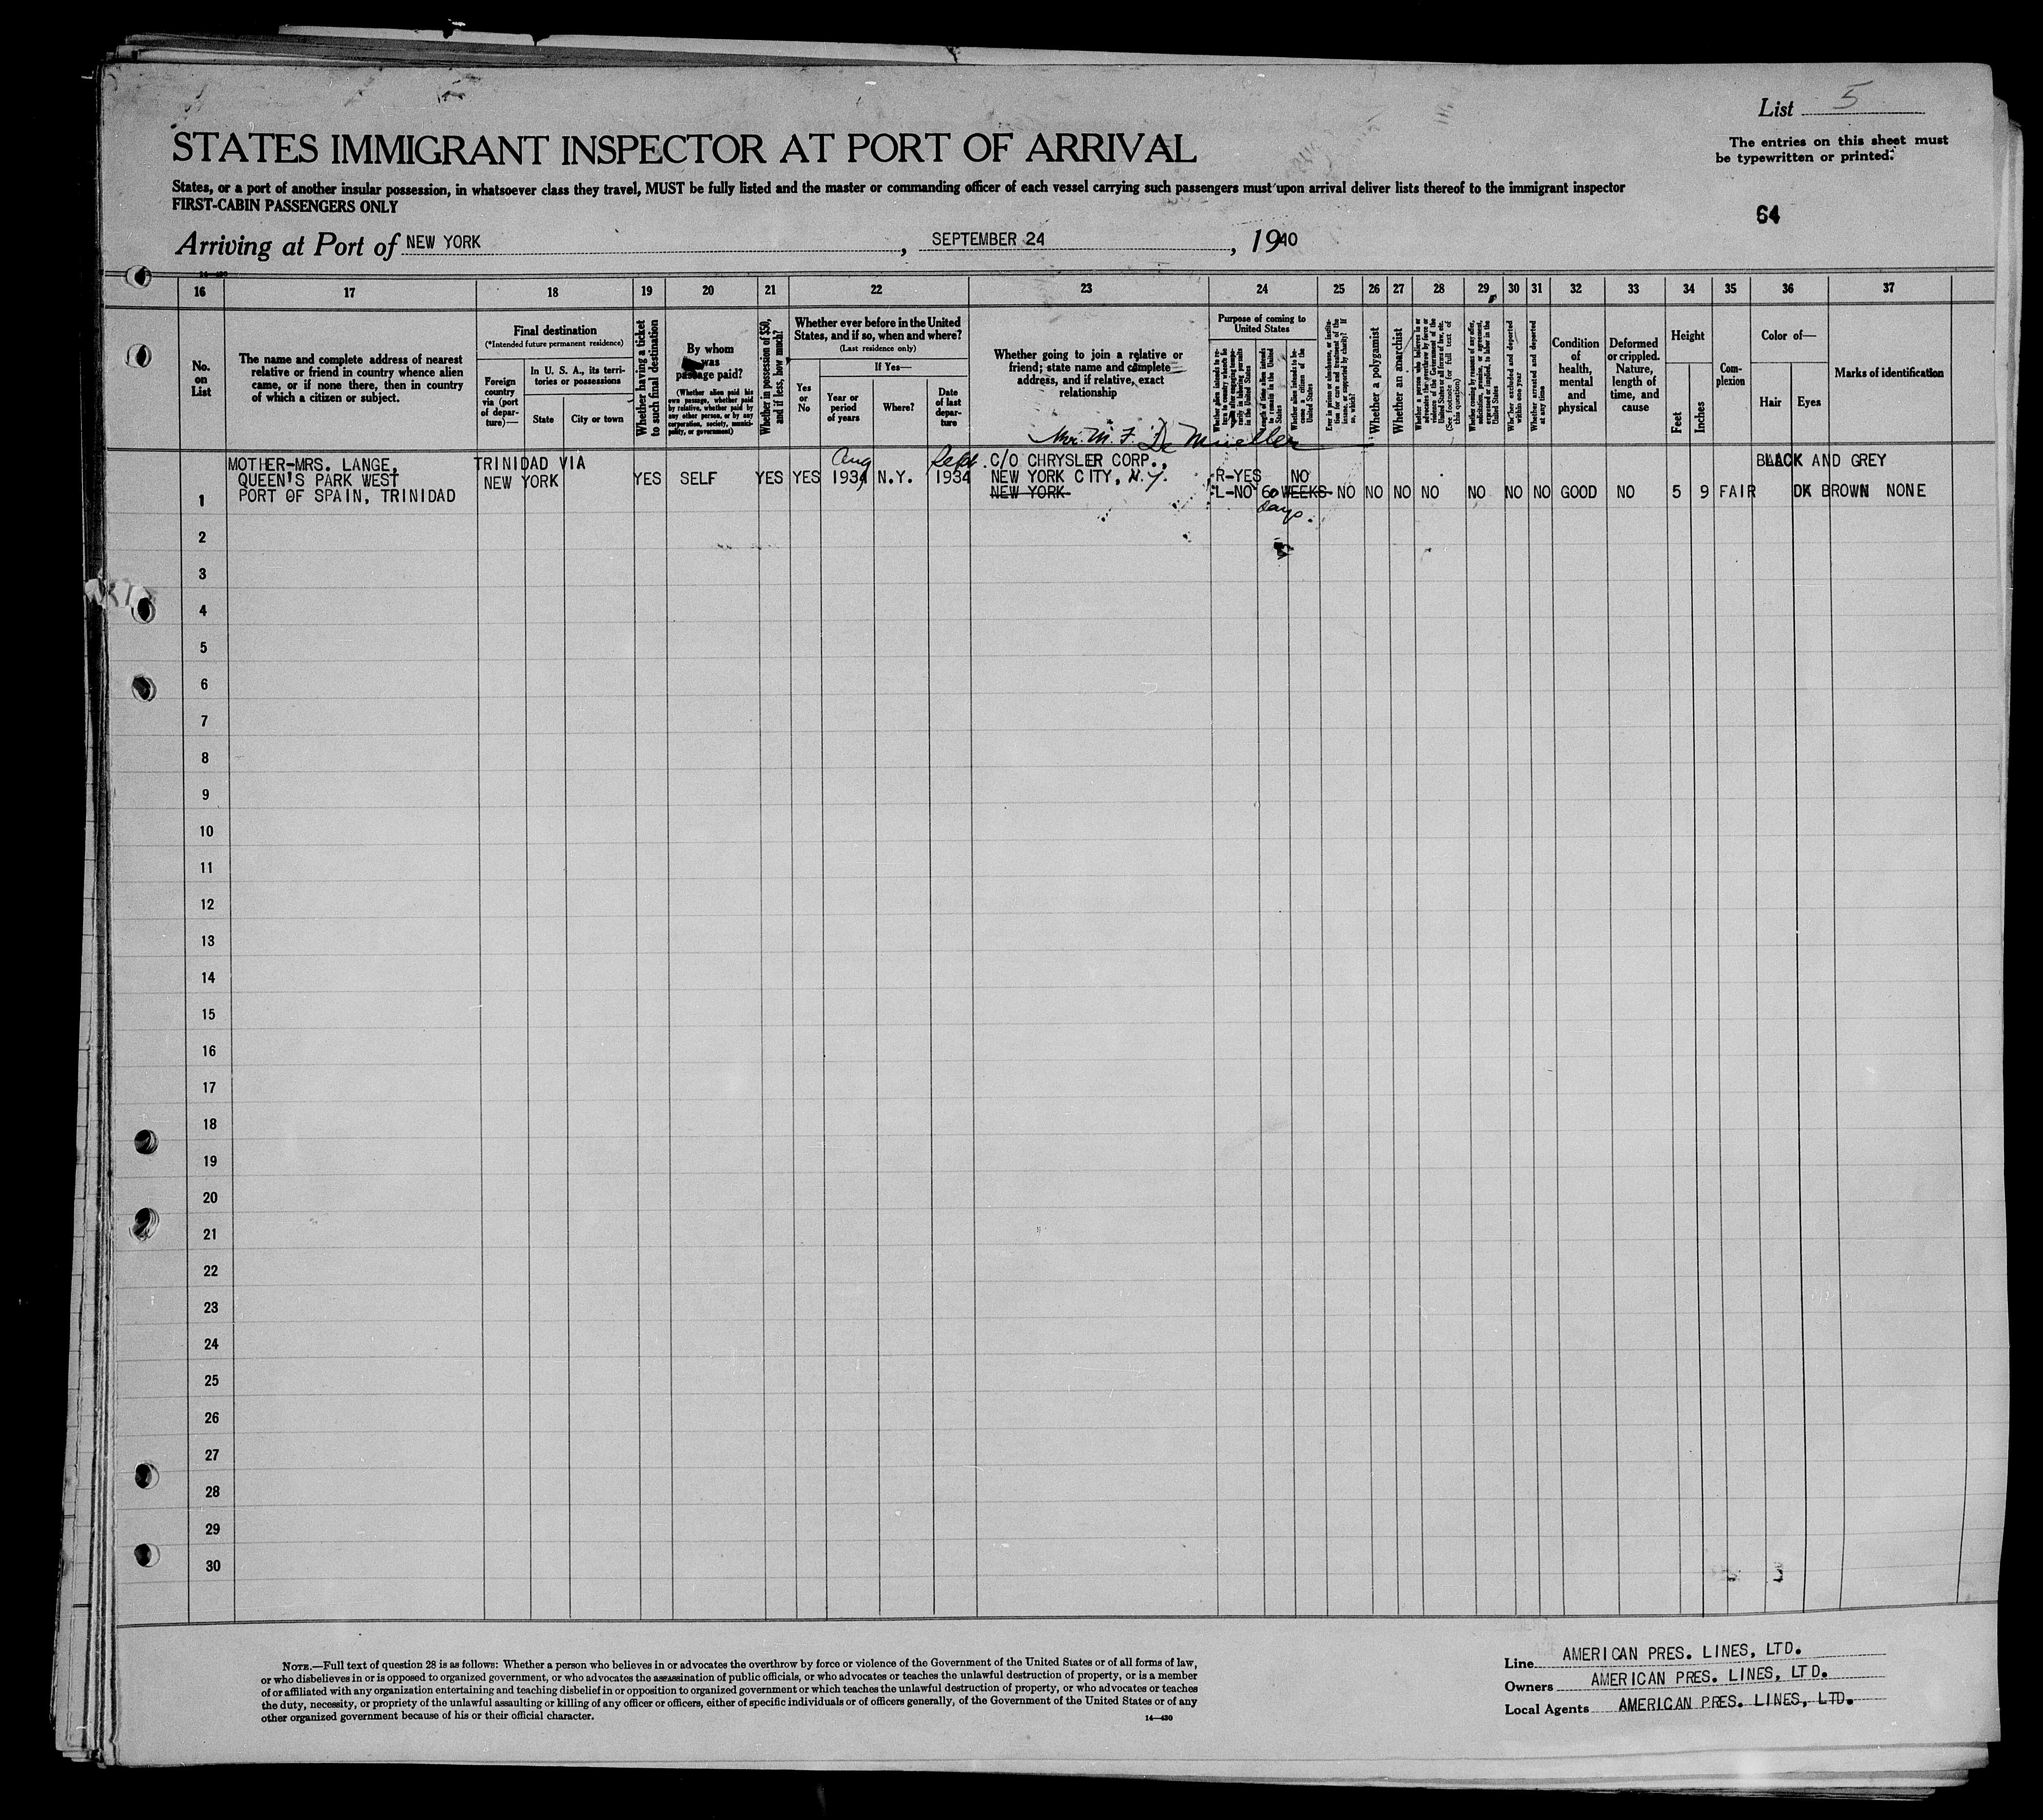 List 5
The entries on this sheet must
be typewritten or printed.
STATES IMMIGRANT INSPECTOR AT PORT OF ARRIVAL
States, or a port of another insular possession, in whatsoever class they travel, MUST be fully listed and the master or commanding officer of each vessel carrying such passengers must upon arrival deliver lists thereof to the immigrant inspector
FIRST-CABIN PASSENGERS ONLY
64
Arriving at Port of NEW YORK, SEPTEMBER 24, 1940
14—430
16 17 18 19 20 21 22 23 24 25 26 27 28 29 30 31 32 33 34 35 36 37
No.
on
List
The name and complete address of nearest
relative or friend in country whence alien
came, or if none there, then in country
of which a citizen or subject.
Final destination
(*Intended future permanent residence)
Foreign
country
via (port
of depar-
ture)—
In U. S. A., its terri-
tories or possessions
State
City or town
Whether having a ticket
to such final destination
By whom
was
passage paid?
(Whether alien paid his
own passage, whether paid
by relative, whether paid by
any other person, or by any
corporation, society, munici-
pality, or government)
Whether in possession of $50,
and if less, how much?
Whether ever before in the United
States, and if so, when and where?
(Last residence only)
Yes
or
No
If Yes—
Year or
period
of years
Where?
Date
of last
depar-
ture
Whether going to join a relative or
friend; state name and complete
address, and if relative, exact
relationship
Purpose of coming to
United States
Whether alien intends to re-
turn to country whence he
came after engaging tempo-
rarily in laboring pursuits
in the United States
Length of time alien intends
to remain in the United
States
Whether alien intends to be-
come a citizen of the
United States
Ever in prison or almshouse, or institu-
tion for care and treatment of the
insane, or supported by charity? If
so, which?
Whether a polygamist
Whether an anarchist
(See footnote for full text of
this question)
Whether coming by reason of any offer,
solicitation, promise, or agreement,
expressed or implied, to labor in the
United States
Whether excluded and deported
within one year
Whether arrested and deported
at any time
Condition
of
health,
mental
and
physical
Deformed
or crippled.
Nature,
length of
time, and
cause
Height
Feet
Inches
Com-
plexion
Color of—
Hair
Eyes
Marks of identification
Mr. M. F. De Mueller
MOTHER-MRS. LANGE, TRINIDAD VIA Aug Sept. C/O CHRYSLER CORP., BLACK AND GREY
QUEEN'S PARK WEST NEW YORK YES SELF YES YES 1934 N.Y. 1934 NEW YORK CITY, N.Y. R-YES NO
1 PORT OF SPAIN, TRINIDAD NEW YORK L-NO 60 WEEKS NO NO NO NO NO NO NO GOOD NO 5 9 FAIR DK BROWN NONE
days.
2
3
4
5
6
7
8
9
10
11
12
13
14
15
16
17
18
19
20
21
22
23
24
25
26
27
28
29
30
NOTE.—Full text of question 28 is as follows: Whether a person who believes in or advocates the overthrow by force or violence of the Government of the United States or of all forms of law,
or who disbelieves in or is opposed to organized government, or who advocates the assassination of public officials, or who advocates or teaches the unlawful destruction of property, or is a member
of or affiliated with any organization entertaining and teaching disbelief in or opposition to organized government or which teaches the unlawful destruction of property, or who advocates or teaches
the duty, necessity, or propriety of the unlawful assaulting or killing of any officer or officers, either of specific individuals or of officers generally, of the Government of the United States or of any
other organized government because of his or their official character.
14—430
Line AMERICAN PRES. LINES, LTD.
Owners AMERICAN PRES. LINES, LTD.
Local Agents AMERICAN PRES. LINES, LTD.